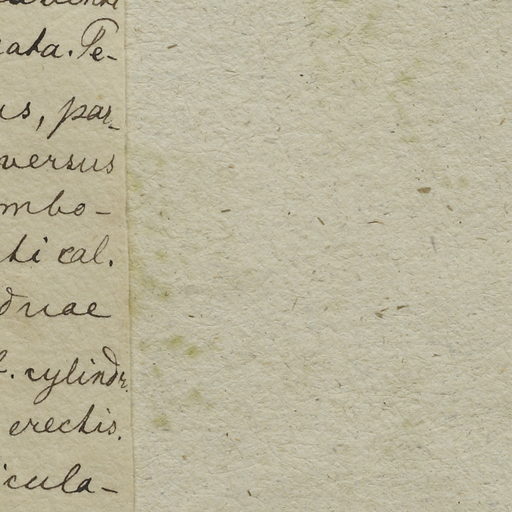 cata. Pe-
us, par-
versus
mbo-
hi cal.
duae
f. cylindr.
erectis.
icula-